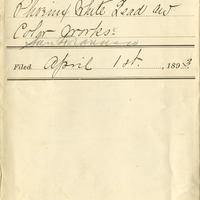 Phoenix White Lead and
Color Works
San Francisco
Filed April 1st, 1893